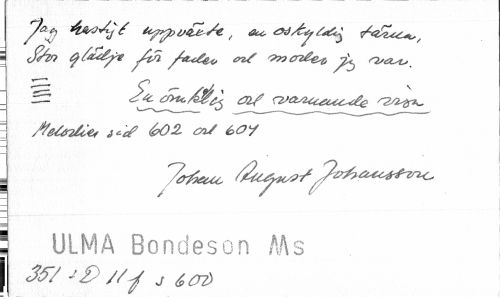 Jag hastigt uppväxte, en oskyldig tärna,
Stor glädje för fader och moder jag var.
En ömklig och varnande visa
Melodier sid 602 och 604
Johan August Johansson
ULMA Bondeson Ms
351:D 11f s 600